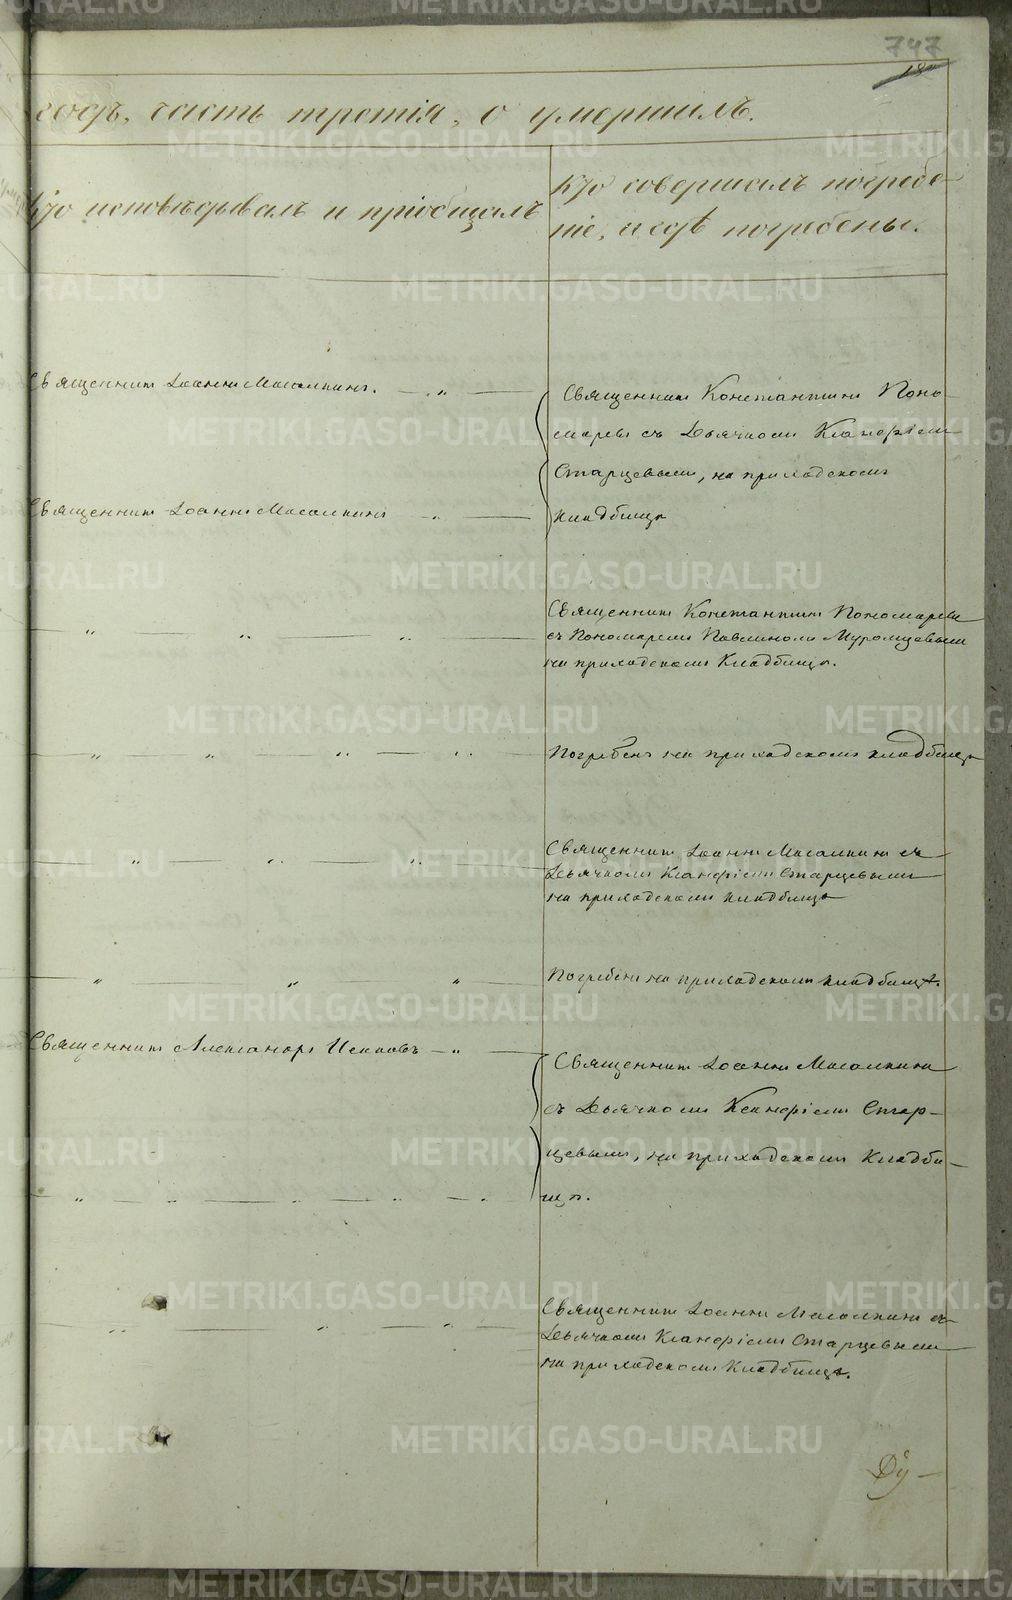 747
годъ, часть третія, о умершихъ.
Кто исповѣдывалъ и пріобщалъ
Кто совершалъ погребе-
ніе, и гдѣ погребены.
Священникъ Іоаннъ Масалкинъ. — „ —
Священникъ Константинъ Поно-
маревъ съ Дьячкомъ
Старцевымъ, на приходскомъ
кладбищѣ
Священникъ Іоаннъ Масалкинъ — „ —
Священникъ Константинъ Пономаревъ
съ Пономаремъ Павлиномъ Муромцевымъ
на приходскомъ Кладбищѣ.
Погребенъ на приходскомъ кладбищѣ
Священникъ Іоаннъ Масалкинъ съ
Дьячкомъ Старцевымъ
на приходскомъ кладбищѣ
Погребенъ на приходскомъ кладбищѣ.
Священникъ Александръ — „ —
Священникъ Іоаннъ Масалкинъ
съ Дьячкомъ Стар-
цевымъ, на приходскомъ Кладби-
щѣ.
Священникъ Іоаннъ Масалкинъ съ
Дьячкомъ Старцевымъ
на приходскомъ Кладбищѣ.
Ду-
METRIKI.GASO-URAL.RU